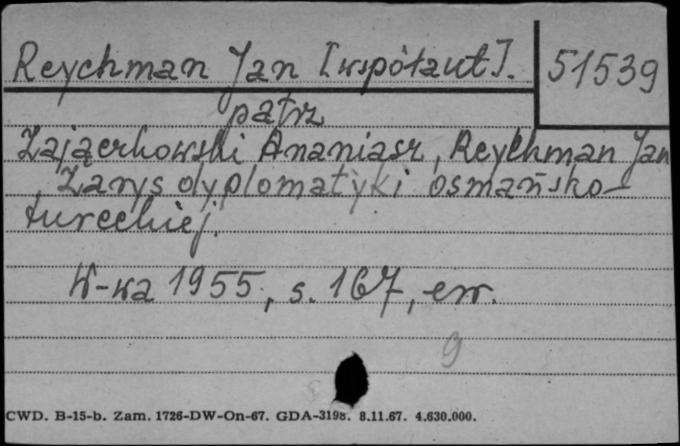 Reychman Jan [współaut]. 51539
patrz
Zajączkowski Ananiasz, Reychman Jan
Zarys dyplomatyki osmańsko-
tureckiej.
W-wa 1955, s. 167, err.
9
CWD. B-15-b. Zam. 1726-DW-On-67. GDA-3198. 8.11.67. 4.630.000.